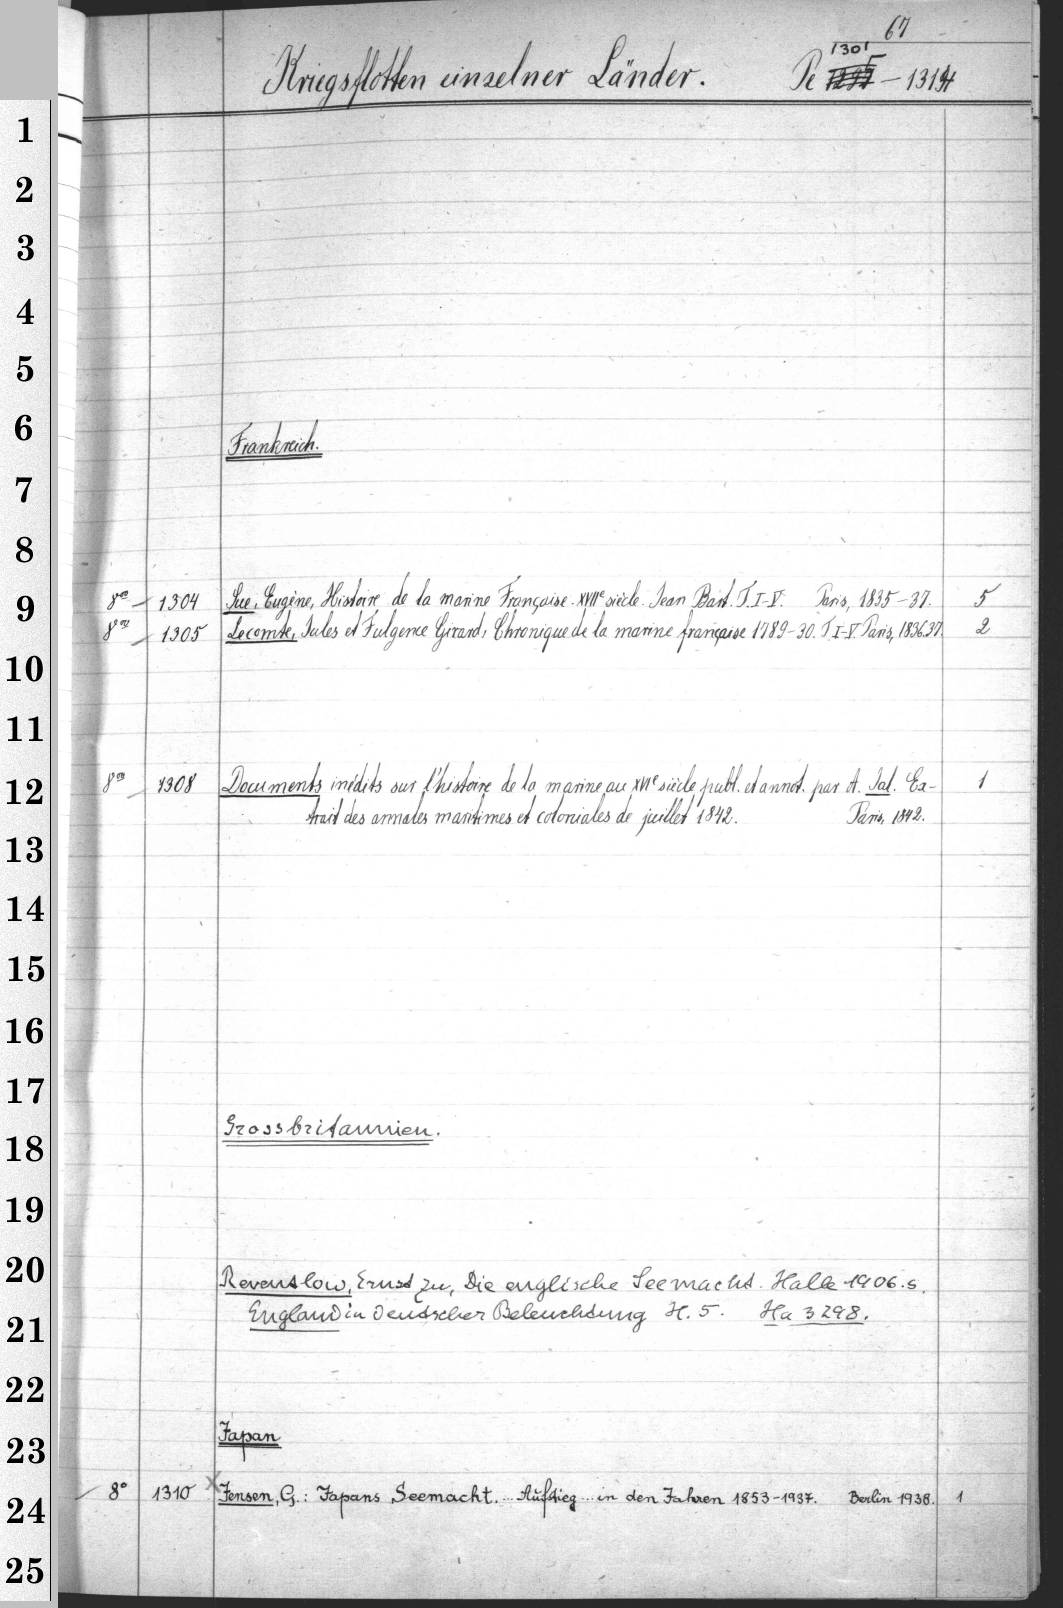 67
1301
Kriegsflotten einzelner Länder. Pe — 1314
1
2
3
4
5
6
Frankreich.
7
8
9
8vo — 1304 Sue, Eugène, Histoire de la marine Française. XVIIe siècle. Jean Bart. T. I-V. Paris, 1835-37. 5
8vo — 1305 Lecomte, Jules et Fulgence Girard, Chronique de la marine française 1789-30. T. I-V. Paris, 1836.37. 2
10
11
12
8vo — 1308 Documents inédits sur l'histoire de la marine au XVIe siècle publ. et annot. par A. Jal. Ex- 1
trait des annales maritimes et coloniales de juillet 1842. Paris, 1842.
13
14
15
16
17
Grossbritannien.
18
19
20
Reventlow, Ernst zu, Die englische Seemacht. Halle 1906. s.
England in deutscher Beleuchtung H. 5. Ha 3298.
21
22
Japan
23
8° 1310 × Jensen, G.: Japans Seemacht. ... Aufstieg ... in den Jahren 1853-1937. Berlin 1938. 1
24
25